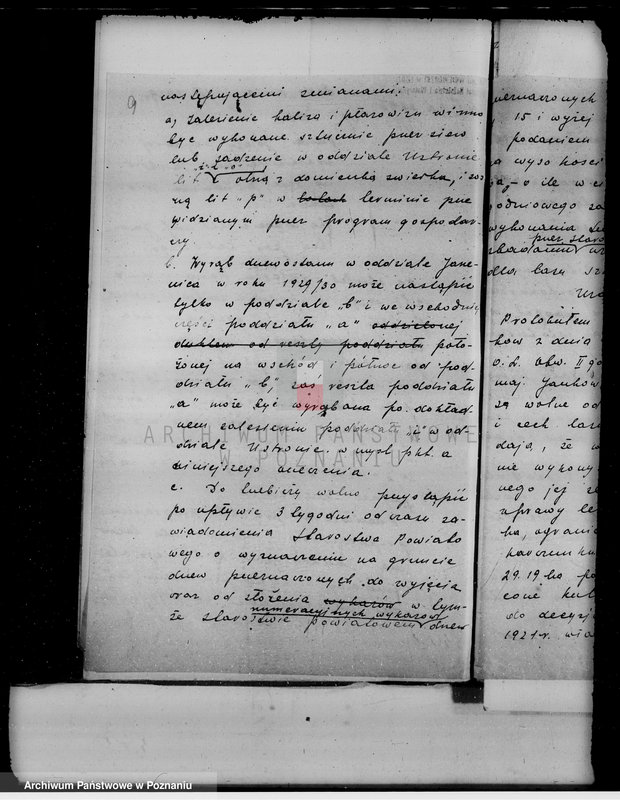 9
następującemi zmianami.
a, Zalesienie halizn i płazowizn winno
być wykonane sztucznie przez siew
lub sadzenie w oddziale Ustronie
lit olszą z domieszką świerka, i sos
ną lit "p" w latach terminie prze
widzianym przez program gospodar-
czy.
b. Wyrąb drzewostanu w oddziale Jane-
nica w roku 1929/30 może nastąpić
tylko w poddziale "b" i we wschodniej
części poddziału "a" oddzielonej
duktem od reszty poddziału poło-
żonej na wschód i północ od pod-
działu "b", zaś reszta poddziału
"a" może być wyrąbana po dokład-
nem zalesieniu poddziału w od-
dziale Ustronie w myśl pkt. a
niniejszego orzeczenia.
c. Do trzebieży wolno przystąpić
po upływie 3 tygodni od czasu za-
wiadomienia Starostwa Powiato
wego o wyznaczeniu na gruncie
drzew przeznaczonych do wyjęcia
oraz od złożenia wykazów w tym-
numeracyjnych wykazów
że starostwie powiatowem drzew
przeznaczonych
15 i wyżej
podaniem
wysokości
o ile w ci
wykonania
przez staro
zbadaniu
dla lasu
Protokółem
ków z dnia
maj. Janków
są wolne od
i cech laso
dają, że w
nie wykony
nego jej
uprawy le
29.19
do decyzji
1921 r.
ARCHIWUM PAŃSTWOWE
W POZNANIU
Archiwum Państwowe w Poznaniu